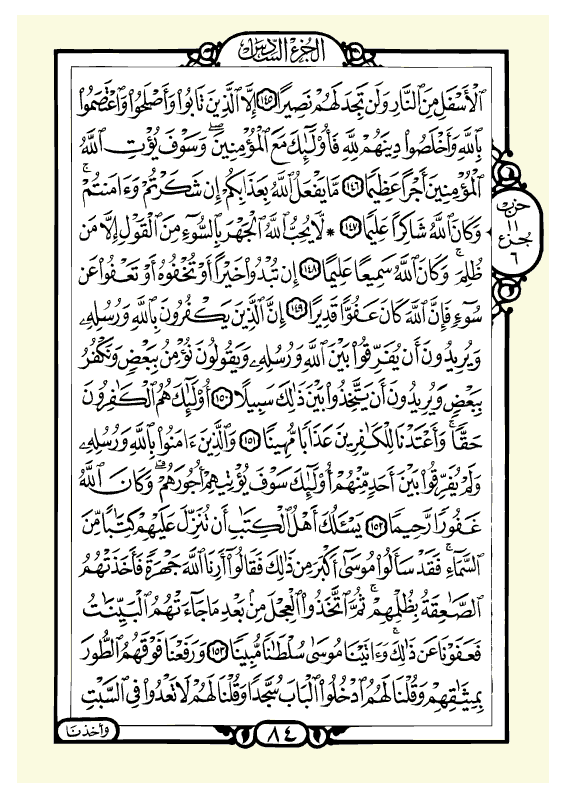 الجُزءُ السَّادِسُ
ٱلْأَسْفَلِ مِنَ ٱلنَّارِ وَلَن تَجِدَ لَهُمْ نَصِيرًا ١٤٥ إِلَّا ٱلَّذِينَ تَابُوا۟ وَأَصْلَحُوا۟ وَٱعْتَصَمُوا۟
بِٱللَّهِ وَأَخْلَصُوا۟ دِينَهُمْ لِلَّهِ فَأُو۟لَٰٓئِكَ مَعَ ٱلْمُؤْمِنِينَ ۖ وَسَوْفَ يُؤْتِ ٱللَّهُ
ٱلْمُؤْمِنِينَ أَجْرًا عَظِيمًا ١٤٦ مَّا يَفْعَلُ ٱللَّهُ بِعَذَابِكُمْ إِن شَكَرْتُمْ وَءَامَنتُمْ ۚ
وَكَانَ ٱللَّهُ شَاكِرًا عَلِيمًا ١٤٧ * لَّا يُحِبُّ ٱللَّهُ ٱلْجَهْرَ بِٱلسُّوٓءِ مِنَ ٱلْقَوْلِ إِلَّا مَن
ظُلِمَ ۚ وَكَانَ ٱللَّهُ سَمِيعًا عَلِيمًا ١٤٨ إِن تُبْدُوا۟ خَيْرًا أَوْ تُخْفُوهُ أَوْ تَعْفُوا۟ عَن
سُوٓءٍ فَإِنَّ ٱللَّهَ كَانَ عَفُوًّا قَدِيرًا ١٤٩ إِنَّ ٱلَّذِينَ يَكْفُرُونَ بِٱللَّهِ وَرُسُلِهِۦ
وَيُرِيدُونَ أَن يُفَرِّقُوا۟ بَيْنَ ٱللَّهِ وَرُسُلِهِۦ وَيَقُولُونَ نُؤْمِنُ بِبَعْضٍ وَنَكْفُرُ
بِبَعْضٍ وَيُرِيدُونَ أَن يَتَّخِذُوا۟ بَيْنَ ذَٰلِكَ سَبِيلًا ١٥٠ أُو۟لَٰٓئِكَ هُمُ ٱلْكَٰفِرُونَ
حَقًّا ۚ وَأَعْتَدْنَا لِلْكَٰفِرِينَ عَذَابًا مُّهِينًا ١٥١ وَٱلَّذِينَ ءَامَنُوا۟ بِٱللَّهِ وَرُسُلِهِۦ
وَلَمْ يُفَرِّقُوا۟ بَيْنَ أَحَدٍ مِّنْهُمْ أُو۟لَٰٓئِكَ سَوْفَ يُؤْتِيهِمْ أُجُورَهُمْ ۗ وَكَانَ ٱللَّهُ
غَفُورًا رَّحِيمًا ١٥٢ يَسْـَٔلُكَ أَهْلُ ٱلْكِتَٰبِ أَن تُنَزِّلَ عَلَيْهِمْ كِتَٰبًا مِّنَ
ٱلسَّمَآءِ ۚ فَقَدْ سَأَلُوا۟ مُوسَىٰٓ أَكْبَرَ مِن ذَٰلِكَ فَقَالُوٓا۟ أَرِنَا ٱللَّهَ جَهْرَةً فَأَخَذَتْهُمُ
ٱلصَّٰعِقَةُ بِظُلْمِهِمْ ۚ ثُمَّ ٱتَّخَذُوا۟ ٱلْعِجْلَ مِنۢ بَعْدِ مَا جَآءَتْهُمُ ٱلْبَيِّنَٰتُ
فَعَفَوْنَا عَن ذَٰلِكَ ۚ وَءَاتَيْنَا مُوسَىٰ سُلْطَٰنًا مُّبِينًا ١٥٣ وَرَفَعْنَا فَوْقَهُمُ ٱلطُّورَ
بِمِيثَٰقِهِمْ وَقُلْنَا لَهُمُ ٱدْخُلُوا۟ ٱلْبَابَ سُجَّدًا وَقُلْنَا لَهُمْ لَا تَعْدُوا۟ فِى ٱلسَّبْتِ
حزب
١١
جزء
٦
وأخذنا
٨٤